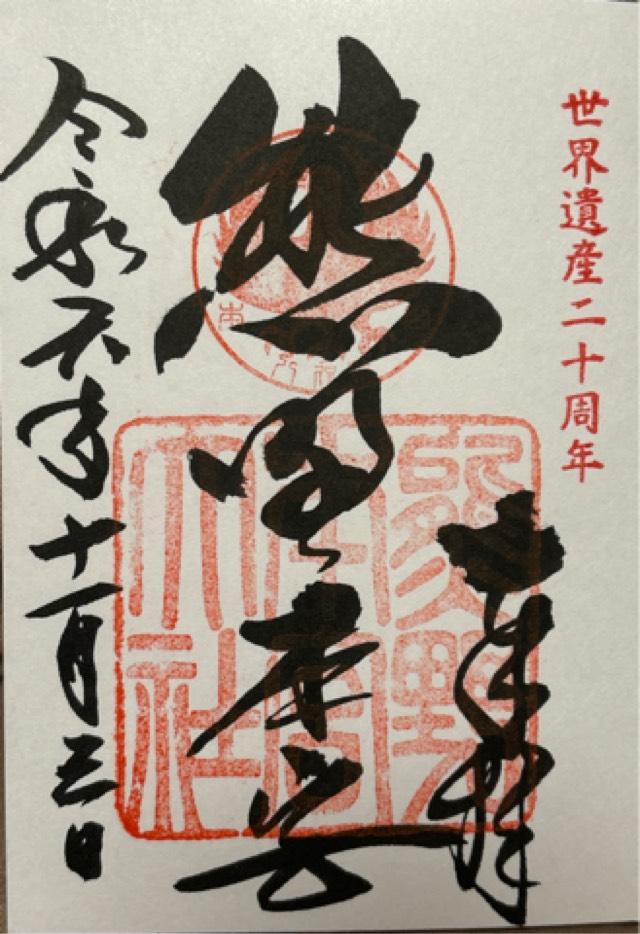 世界遺産二十周年
奉拝
熊野本宮
熊野
本宮
大社
令和六年十一月三日